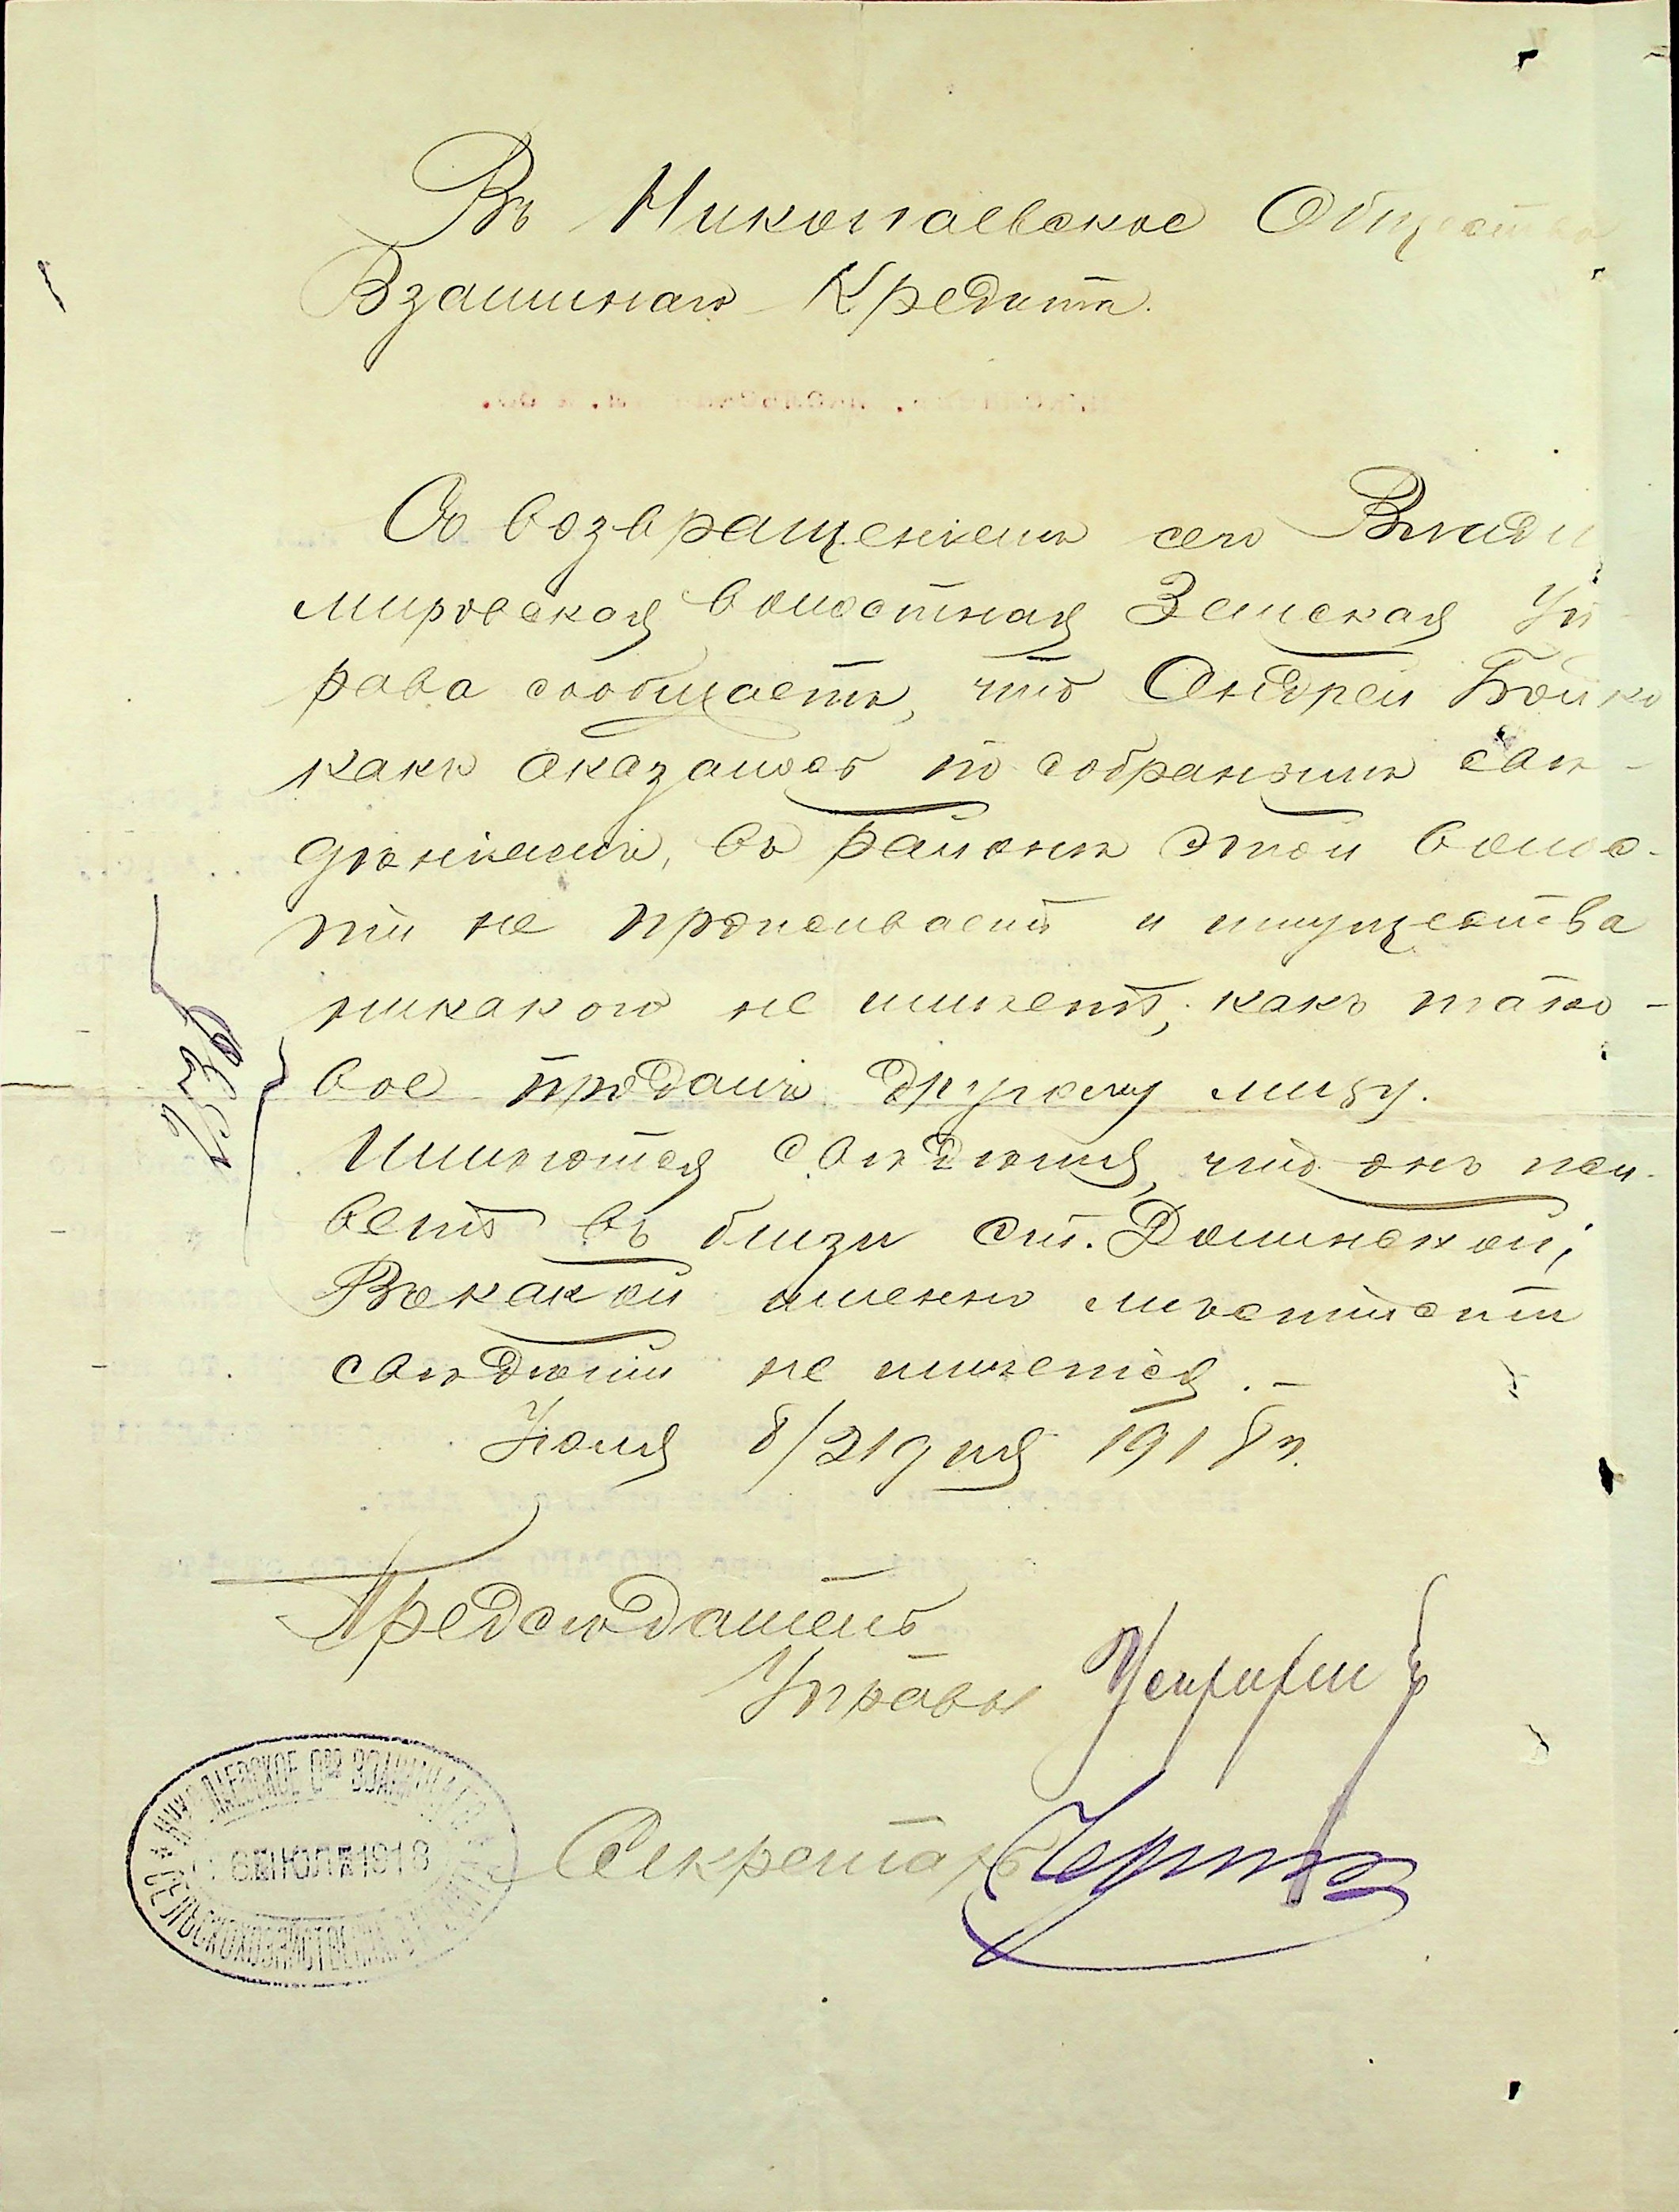 Въ Николаевское Общество
Взаимнаго Кредита.
Съ возвращеніемъ сего Влади
мировская волостная Земская Уп
рава сообщаетъ, что Андрей Бойко
какъ оказалось по собраннымъ свѣ-
дѣніямъ, въ районѣ этой волос-
ти не проживаетъ и имущества
никакого не имѣетъ, какъ тако-
вое продалъ другому лицу.
Имѣются свѣдѣнія, что онъ жи-
ветъ въ близи ст. Долинской;
Въ какой именно мѣстности
свѣдѣній не имѣется.-
Іюля 8/21 дня 1918 г.
Предсѣдатель
Управы
Секретарь
НИКОЛАЕВСКОЕ О-во ВЗАИМНАГО
6 ІЮЛЯ 1918
СЕЛЬСКОХОЗЯЙСТВЕННАГО